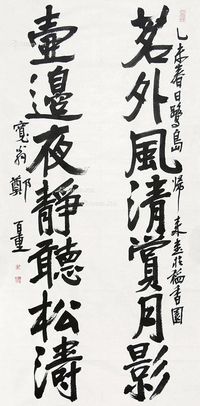 茗外風清賞月影
壺邊夜靜聽松濤
乙未春日鷺島歸來書於稻香園
寬翁鄭百重